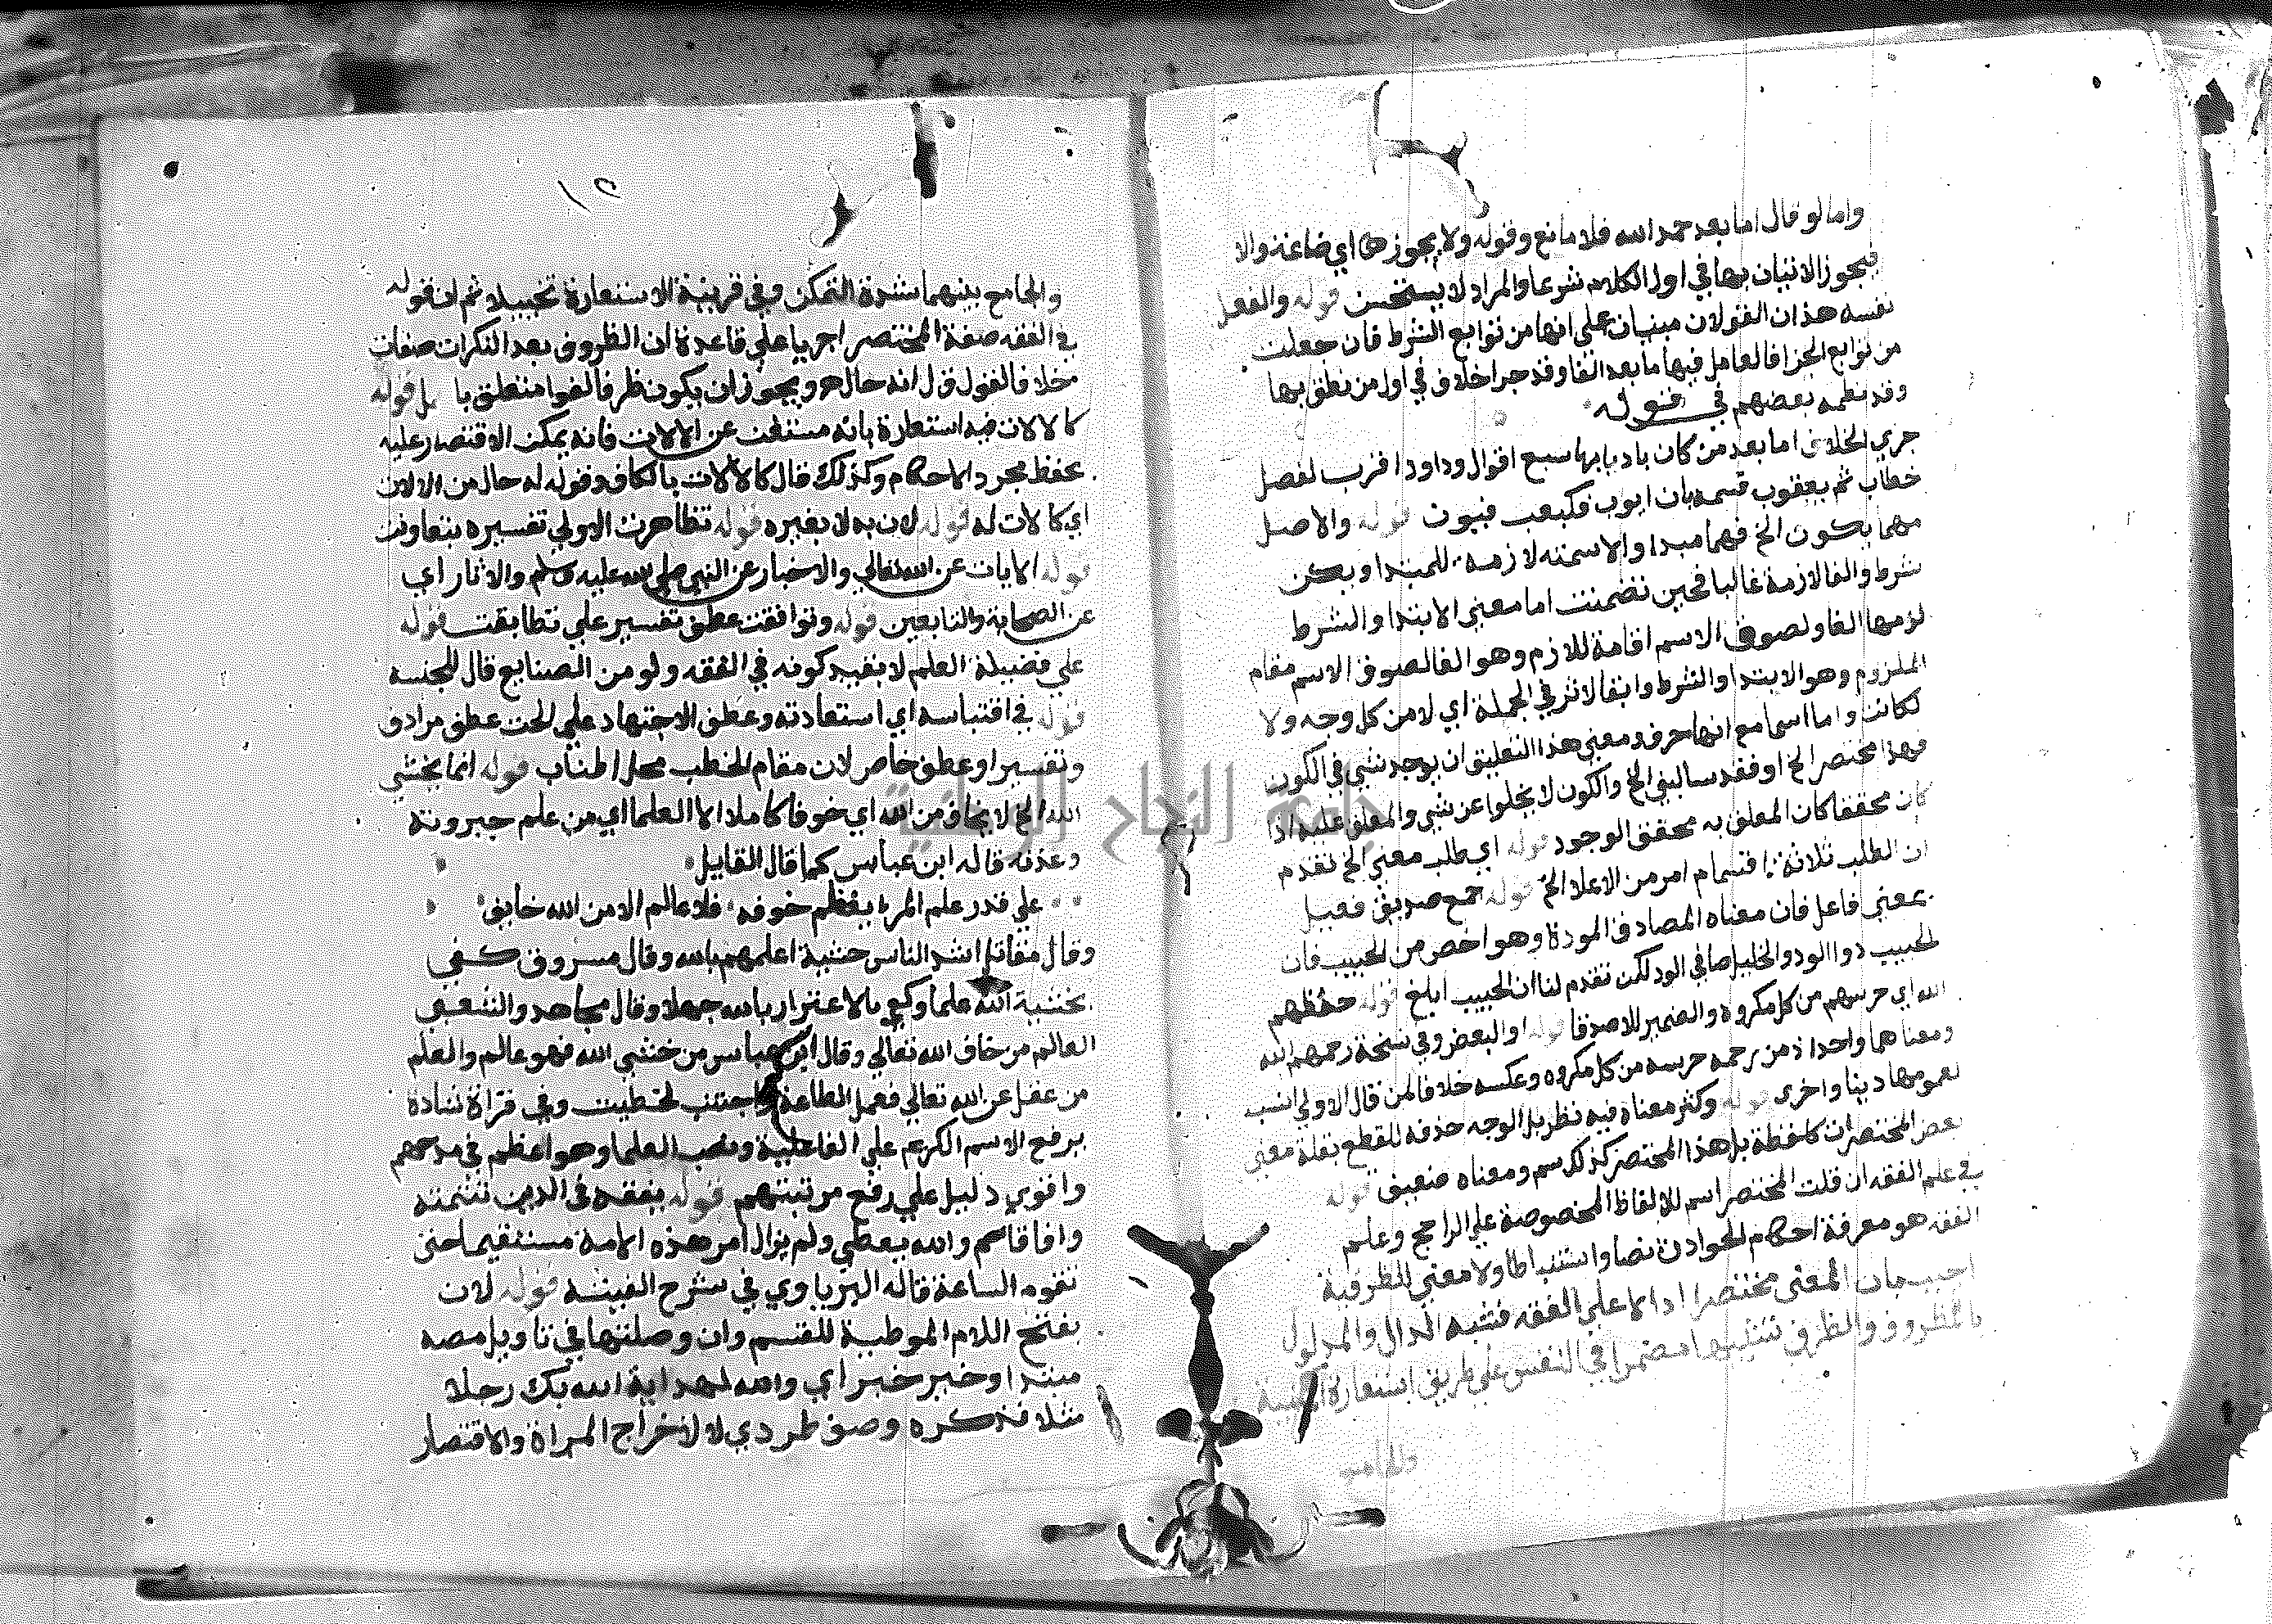 واما لو قال اما بعد حمد الله فلا مانع وقوله ولا يجوز هنا اي صناعة والا
فيجوز الاتيان بها في اول الكلام شرعا والمراد لا يستحسن قوله والفعل
نفسه هذان القولان مبنيان على انها من توابع الشرط فان جعلت
من توابع الجزا فالعامل فيها ما بعد الفا وقد جرا خلاف في اول من نطق بها
وقد نظمه بعضهم في قوله
جري الخلاف اما بعد من كان باديا بها سبع اقوال وداود اقرب لفصل
خطاب ثم يعقوب قسمه بان ايوب فكيعب فبيون قوله والاصل
مهما يكون الخ فهما مبدا والاسمية لازمة للمبتدا ويكن
شرط والفا لازمة غالبا فحين تضمنت اما معني الابتدا والشرط
لزمها الفا ولصوق الاسم اقامة للازم وهو الفا لصوق الاسم مقام
الملزوم وهو الابتدا والشرط وابقا لاثر في الجملة اي لا من كل وجه ولا
لكانت واما اسما مع انها حرف ومعني هذا التعليق ان يوجد شي في الكون
فهذا مختصر الخ او فقد سالني الخ والكون لا يخلوا عن شي والمعلق عليه اذا
كان محققا كان المعلق به محقق الوجود قوله اي طلب معني الخ تقدم
ان الطلب ثلاثة اقسام امر من الاعلا الخ قوله جمع صديق فعيل
بمعني فاعل فان معناه المصادق المودة وهو اخص من الحبيب فان
الحبيب ذو الود والخليل صافي الود لكن تقدم لنا ان الحبيب ابلغ قوله حفظهم
الله اي حرسهم من كل مكروه والضمير للاصدقا قوله او البعض وفي نسخة رحمهم الله
ومعناهما واحد اذ من رحمه حرسه من كل مكروه وعكسه خلافا لمن قال الاولي انسب
لعمومها دينا واخرى قوله وكثر معناه فيه نظر بل الوجه حذفه للقطع بقلة معنى
بعض المختصرات كاخفظة بل هذا المختصر كذلك سم ومعناه ضعيف قوله
في علم الفقه ان قلت المختصر اسم للالفاظ المخصوصة علي الراجح وعلم
الفقه هو معرفة احكام الحوادث نصا واستنباطا ولا معني للظرفية
اجيب بان المعنى مختصرا دالا علي الفقه فشبه الدال والمدلول
بالمظروف والظرف تشبيها مضمرا في النفس علي طريق استعارة المكنية
والجامع
١٥
والجامع بينهما شدة التمكن وفي قرينة الاستعارة تخييلا ثم ان قوله
في الفقه صفة المختصر اجريا علي قاعدة ان الظروف بعد النكرات صفات
خلافا لقول ق ل انه حال ويجوز ان يكون ظرفا لغوا متعلق با قوله
كالالات فيه استعارة بانه مستغن عن الالات فانه يمكن الاقتصار عليه
بحفظ مجرد الاحكام وكذلك قال كالالات بالكاف وقوله له حال من الالات
اي كالات له قوله لان به لا بغيره قوله تظاهرت الاولي تفسيره بتعاونت
قوله الايات عن الله تعالي والاخبار عن النبي صلي الله عليه وسلم والاثار اي
عن الصحابة والتابعين قوله وتوافقت عطف تفسير علي تطابقت قوله
علي فضيلة العلم لا بقيد كونه في الفقه ولو من الصنايع قال للجنسه
قوله في اقتباسه اي استعادته وعطف الاجتهاد علي الحث عطف مرادف
وتفسير او عطف خاص لان مقام الخطب محل اطناب قوله انما يخشي
الله الخ لا يخاف من الله اي خوفا كاملا الا العلما اي من علم جبروته
وعذته قاله ابن عباس كما قال القايل
علي قدر علم المرء يعظم خوفه فلا عالم الا من الله خايف
وقال مقاتل اشد الناس خشية اعلمهم بالله وقال مسروق كفي
بخشية الله علما وكفي بالاغترار بالله جهلا وقال مجاهد والشعبي
العالم من خاف الله تعالي وقال ابن عباس من خشي الله فهو عالم والعلم
من عقل عن الله تعالي فعمل الطاعة واجتنب لخطيت وفي قراة شاذة
برفع الاسم الكريم علي الفاعلية ونصب العلما وهو اعظم في مدحهم
واقوي دليل علي رفع مرتبتهم قوله يفقهه في الدين تتمته
وانا قاسم والله يعطي ولم يزال امر هذه الامة مستقيما حتى
تقوم الساعة قاله البرماوي في شرح الفيته قوله لان
بفتح اللام الموطية للقسم وان وصلتها في تاويل مصه
مبتدا وخبر خبر اي والله لهداية الله بك رجلا
مثلا فذكره وصف طردي لا لاخراج المراة والاقتصار